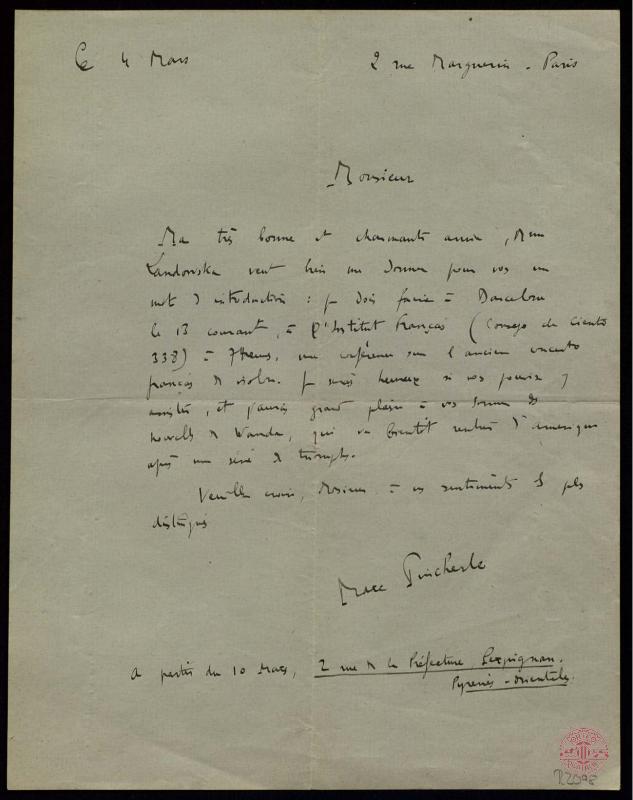 Ce 4 Mars
2 rue Marguerin - Paris
Monsieur
Ma très bonne et charmante amie, Mme
Landowska veut bien me donner pour vous un
mot d'introduction : je dois faire à Barcelone
le 13 courant, à l'Institut Français (Consejo de Ciento
338) à 7 heures, une conférence sur l'ancien concerto
français de violon. Je serais heureux si vous pouviez y
assister, et j'aurais grand plaisir à vous donner des
nouvelles de Wanda, qui va bientôt rentrer d'Amérique
après une série de triomphes.
Veuillez croire, Monsieur, à mes sentiments les plus
distingués
Marc Pincherle
A partir du 10 Mars, 2 rue de la Préfecture, Perpignan.
Pyrénées-Orientales.
ORFEÓ